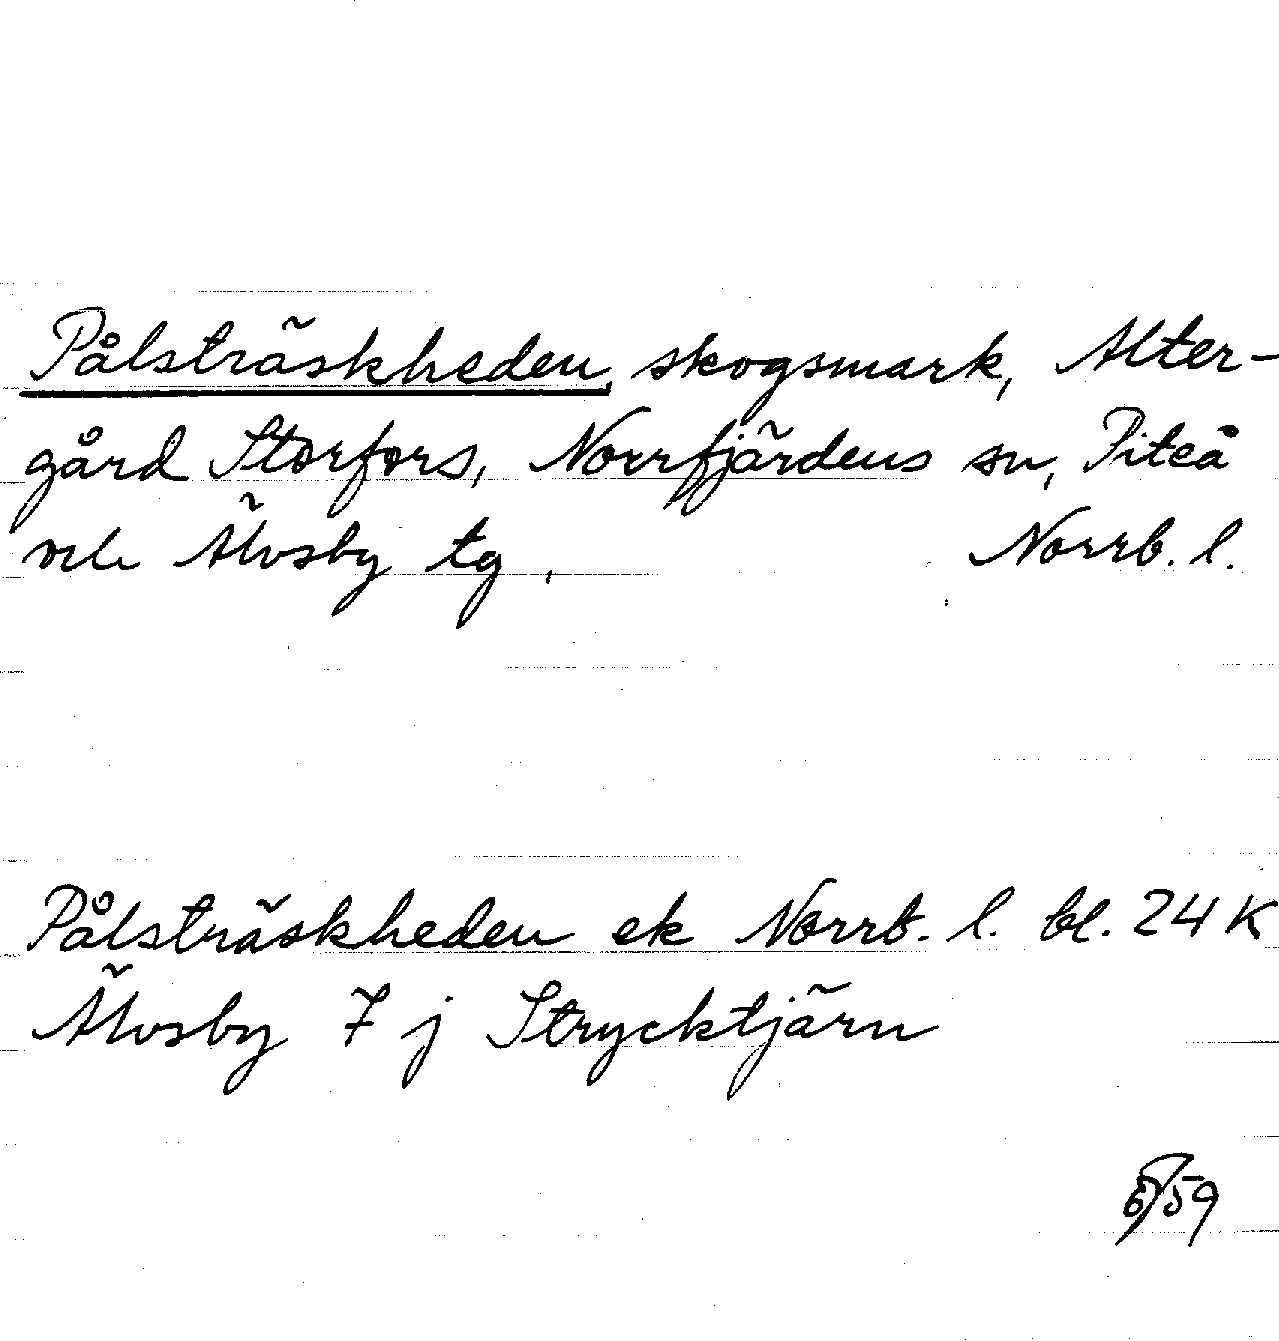 Pålsträskheden, skogsmark, Alter-
gård Storfors, Norrfjärdens sn, Piteå
och Älvsby tg, Norrb. l.
Pålsträskheden ek Norrb. l. bl. 24 K
Älvsby 7 j Strycktjärn
59